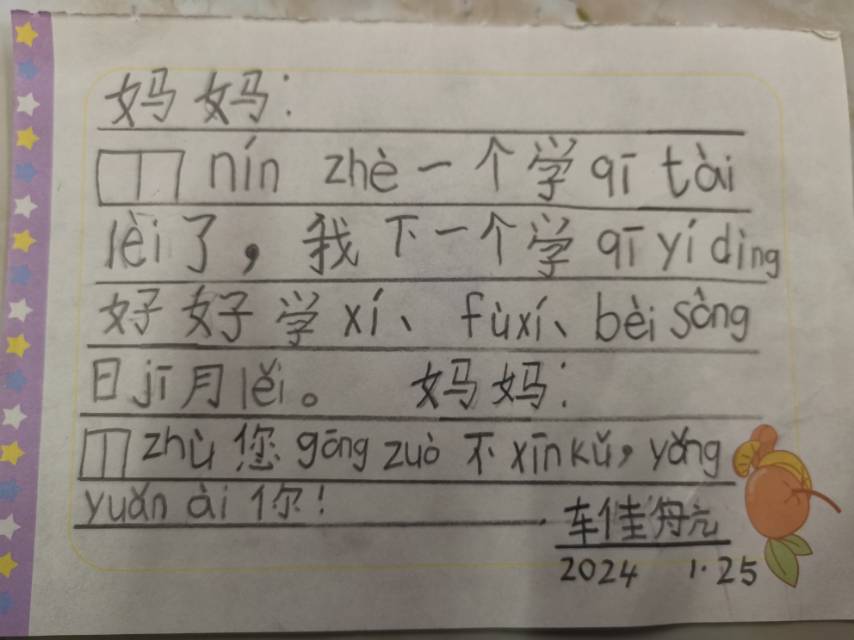 妈妈：
nín zhè一个学qī tài
lèi了，我下一个学qī yí dìng
好好学xí、fùxí、bèi sòng
日jī月lěi。 妈妈：
zhù您gōng zuò不xīn kǔ，yǒng
yuǎn ài你！
车佳
2024 1.25